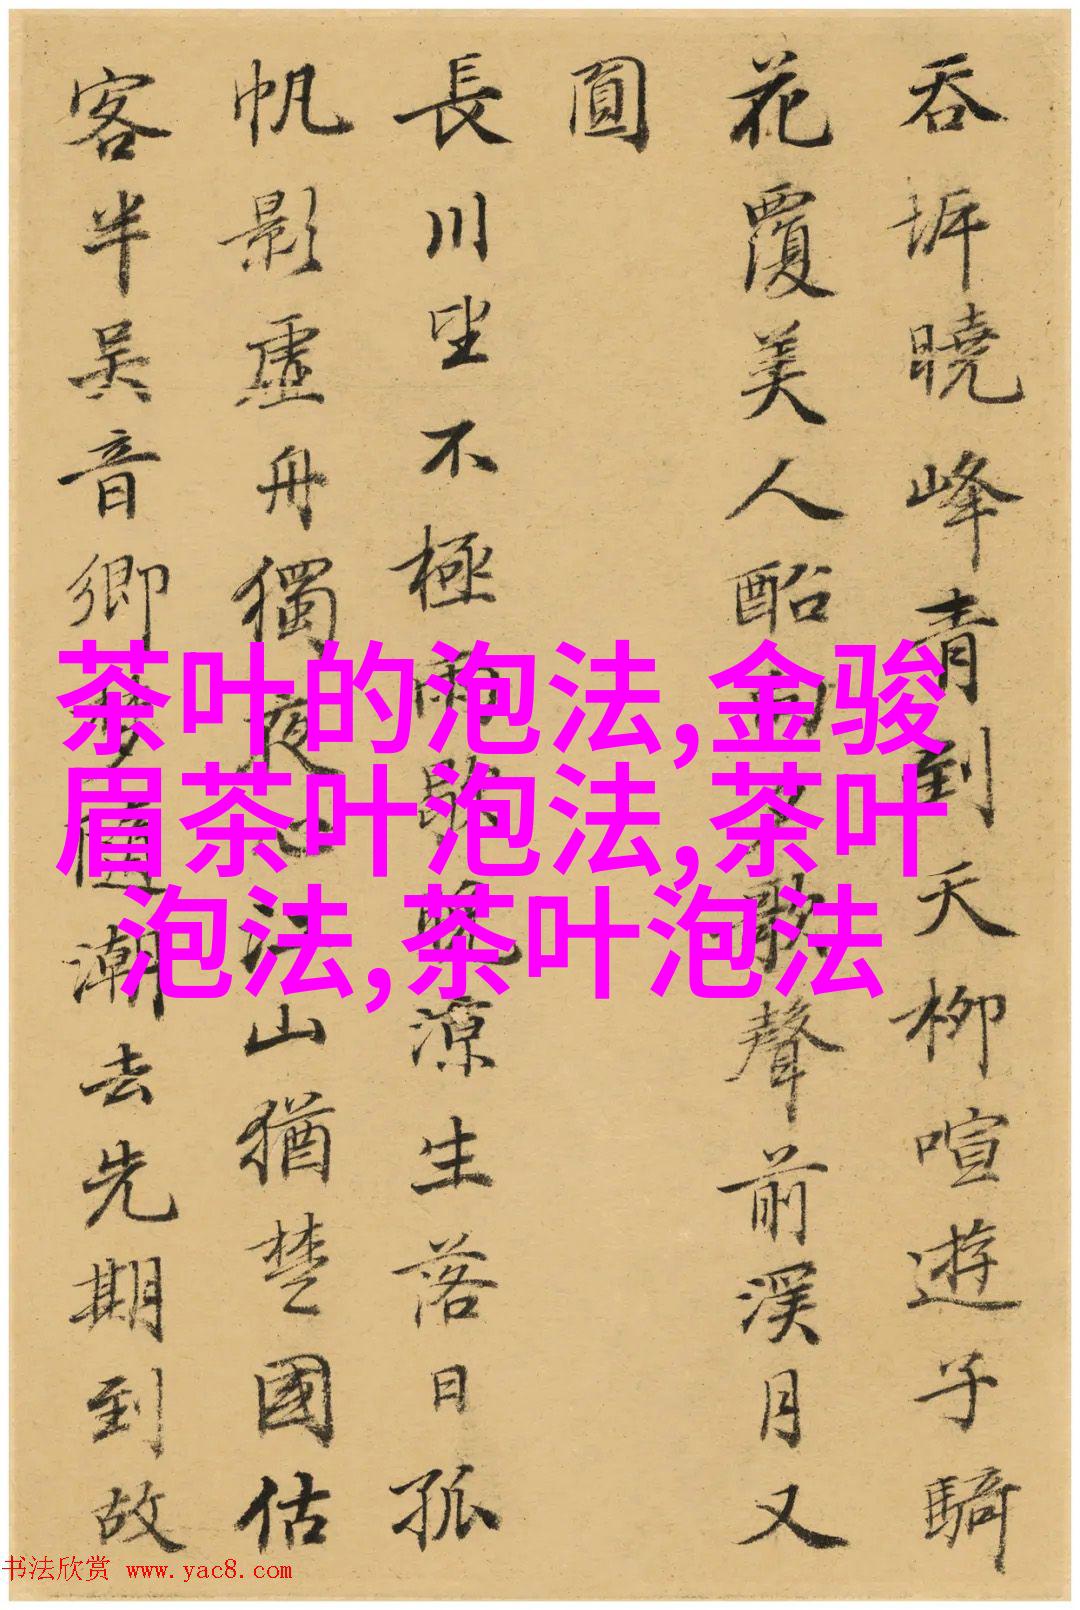 吞坼曉峰青到天柳喧遊子騎
花覆美人船向夕歌聲前溪月又
圓
長川望不極雨歇晚涼生落日孤
帆影虛舟獨夜心江山猶楚國估
客半吳音鄉夢隨潮去先期到故
茶叶的泡法,金骏
眉茶叶泡法,茶叶
泡法,茶叶泡法
书法欣赏 www.yac8.com